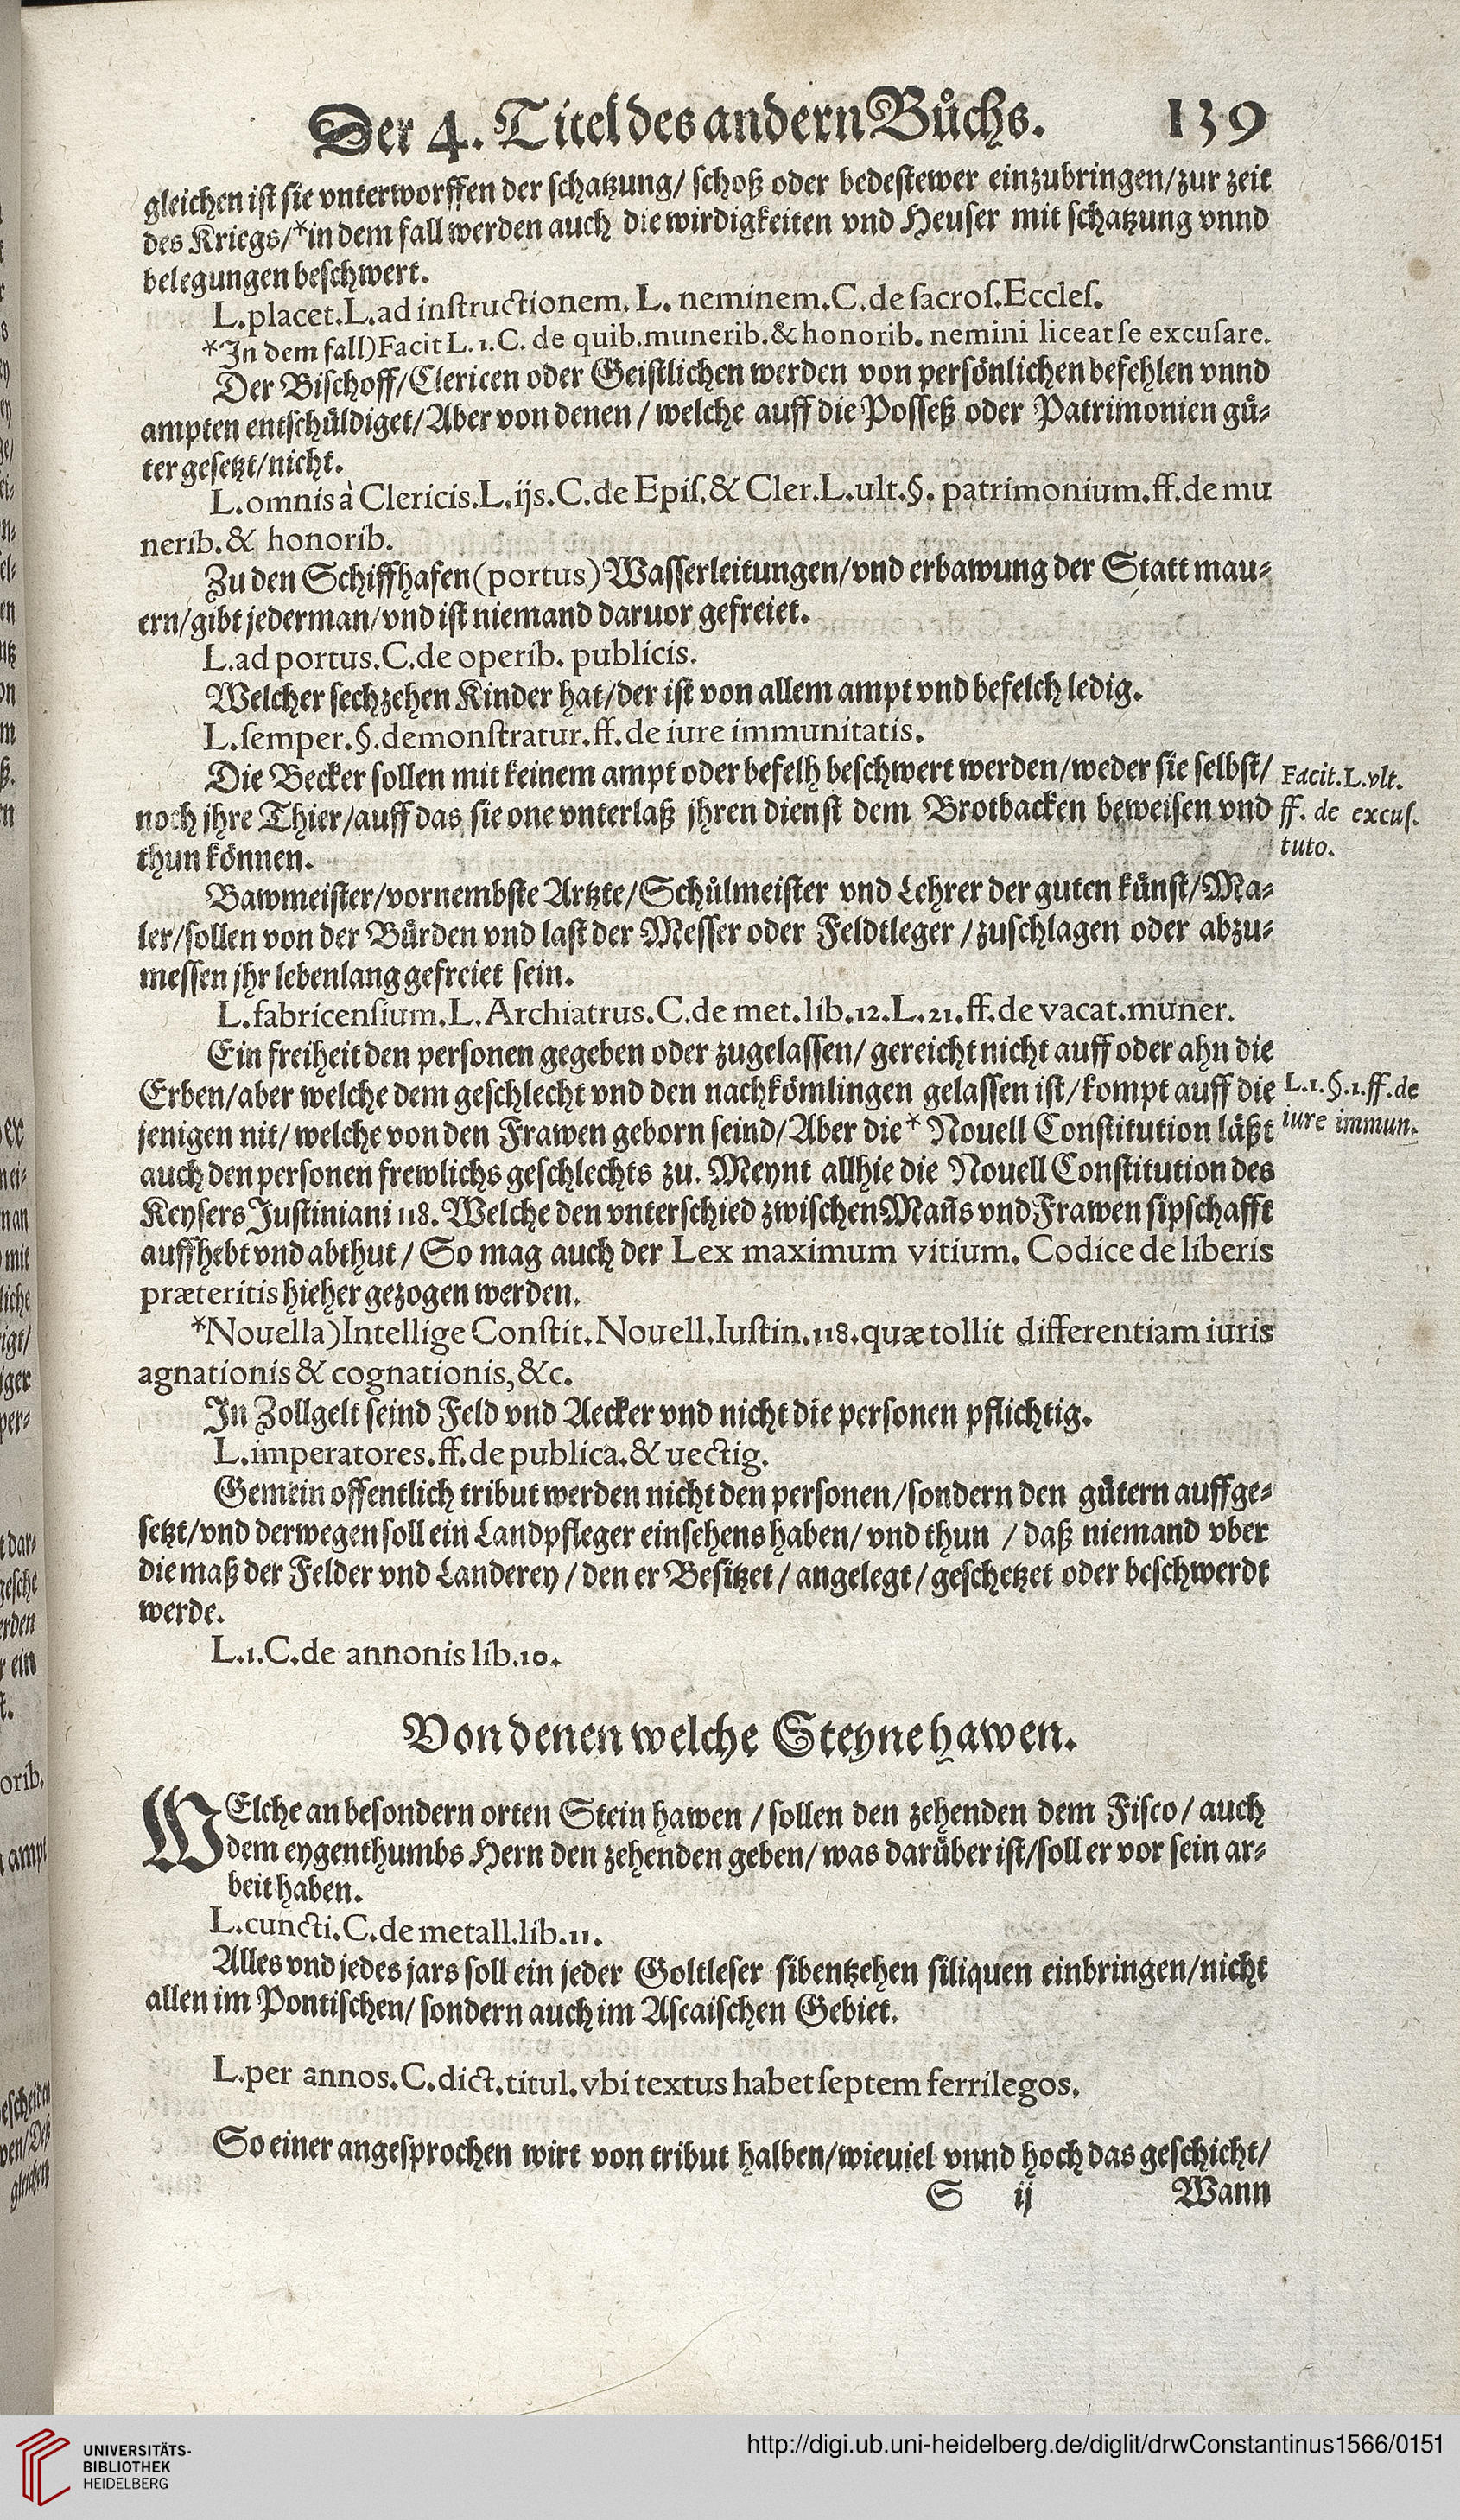 Der 4. Titel des andern Bůchs. 139
gleichen ist sie vnterworffen der schatzung/ schoß oder bedestewer einzubringen/zur zeit
des Kriegs/*in dem fall werden auch die wirdigkeiten vnd Heuser mit schatzung vnnd
belegungen beschwert.
L.placet.L.ad instructionem. L. neminem.C.de sacros.Eccles.
*In dem fall)Facit L.1.C. de quib.munerib.& honorib. nemini liceat se excusare.
Der Bischoff/Clericen oder Geistlichen werden von persönlichen befehlen vnnd
ampten entschüldiget/Aber von denen / welche auff die Posseß oder Patrimonien gü-
ter gesetzt/nicht.
L.omnis à Clericis.L.ijs.C.de Epis.& Cler.L.ult.§. patrimonium.ff.de mu
nerib.& honorib.
Zu den Schiffhafen(portus)Wasserleitungen/vnd erbawung der Statt mau-
ern/gibt jederman/vnd ist niemand daruor gefreiet.
L.ad portus.C.de operib. publicis.
Welcher sechzehen Kinder hat/der ist von allem ampt vnd befelch ledig.
L.semper.§.demonstratur.ff.de iure immunitatis.
Die Becker sollen mit keinem ampt oder befelh beschwert werden/weder sie selbst/
noch jhre Thier/auff das sie one vnterlaß jhren dienst dem Brotbacken beweisen vnd
thun können.
Facit.L.vlt.
ff. de excus.
tuto.
Bawmeister/vornembste Artzte/Schůlmeister vnd Lehrer der guten künst/Ma-
ler/sollen von der Bürden vnd last der Messer oder Feldtleger /zuschlagen oder abzu-
messen jhr lebenlang gefreiet sein.
L.fabricensium.L.Archiatrus.C.de met.lib.12.L.21.ff.de vacat.muner.
Ein freiheit den personen gegeben oder zugelassen/ gereicht nicht auff oder ahn die
Erben/aber welche dem geschlecht vnd den nachkömlingen gelassen ist/kompt auff die
jenigen nit/ welche von den Frawen geborn seind/Aber die* Nouell Constitution läßt
L.1.§.1.ff.de
iure immun.
auch den personen frewlichs geschlechts zu. Meynt allhie die Nouell Constitution des
Keysers Justiniani 118. Welche den vnterschied zwischen Mañs vnd Frawen sipschafft
auffhebt vnd abthut / So mag auch der Lex maximum vitium. Codice de liberis
præteritis hieher gezogen werden.
*Nouella)Intellige Constit.Nouell.Iustin.118.quæ tollit differentiam iuris
agnationis & cognationis,&c.
In Zollgelt seind Feld vnd Aecker vnd nicht die personen pflichtig.
L.imperatores.ff.de publica.& uectig.
Gemein offentlich tribut werden nicht den personen/sondern den gütern auffge-
setzt/vnd derwegen soll ein Landpfleger einsehens haben/ vnd thun / daß niemand vber
die maß der Felder vnd Landerey / den er Besitzet / angelegt / geschetzet oder beschwerdt
werde.
L.1.C.de annonis lib.10.
Von denen welche Steyne hawen.
WElche an besondern orten Stein hawen / sollen den zehenden dem Fisco / auch
dem eygenthumbs Hern den zehenden geben/ was darüber ist/soll er vor sein ar-
beit haben.
L.cuncti.C.de metall.lib.11.
Alles vnd jedes jars soll ein jeder Goltleser sibentzehen siliquen einbringen/nicht
allen im Pontischen/ sondern auch im Ascaischen Gebiet.
L.per annos.C.dict.titul.vbi textus habet septem ferrilegos.
So einer angesprochen wirt von tribut halben/wieuiel vnnd hoch das geschicht/
S ij Wann
UNIVERSITÄTS-
BIBLIOTHEK
HEIDELBERG
http://digi.ub.uni-heidelberg.de/diglit/drwConstantinus1566/0151